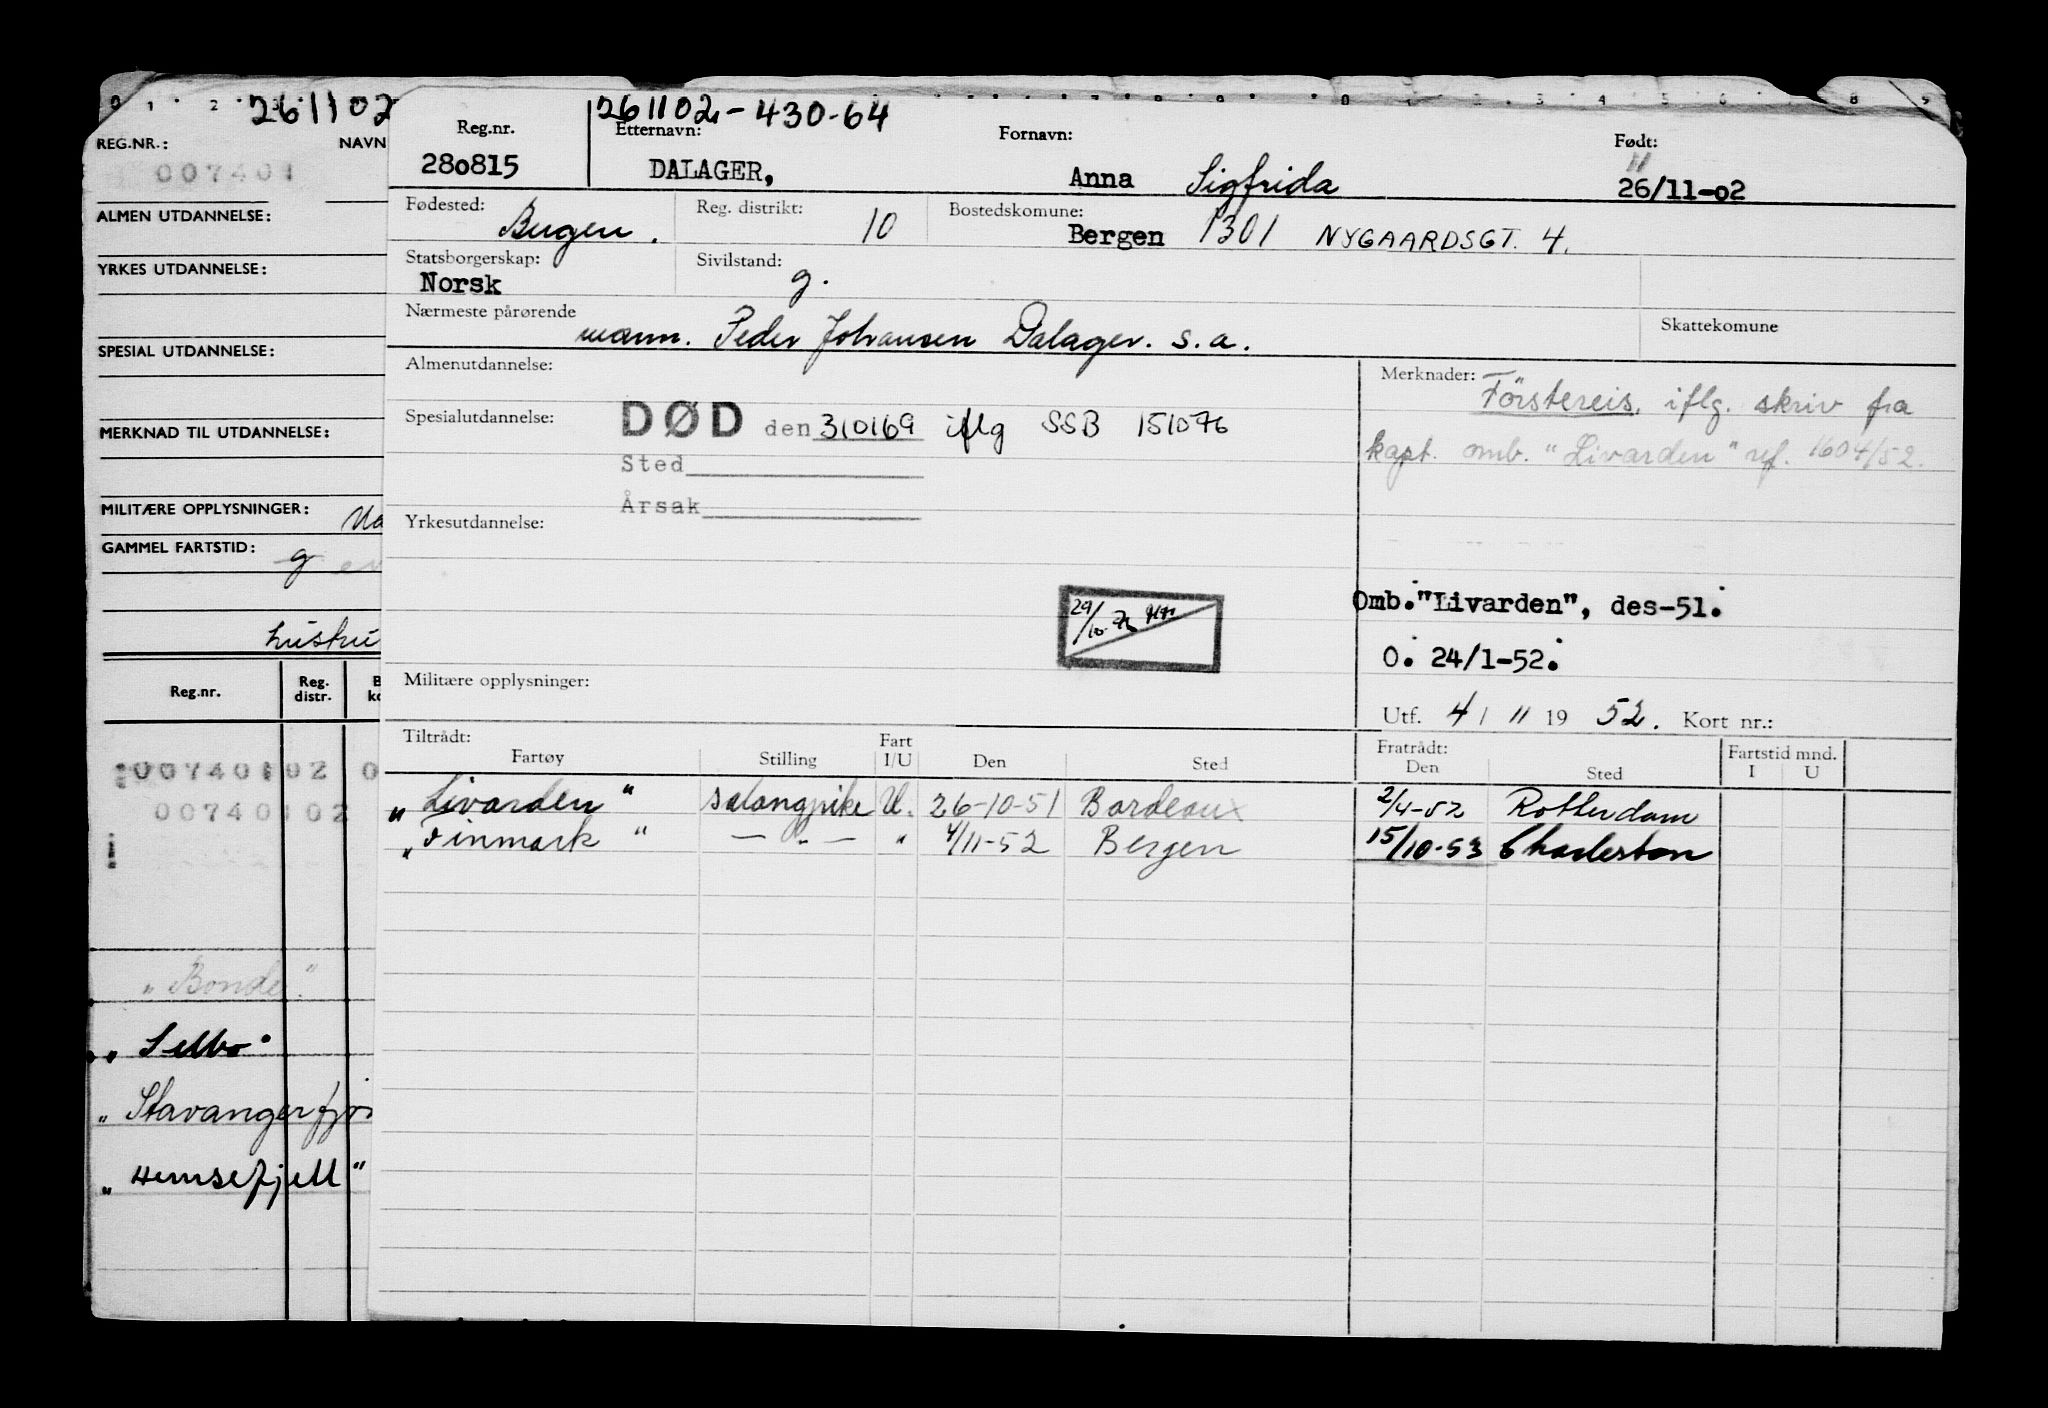 0 1 2 3
261102
REG.NR.: NAVN
007401
ALMEN UTDANNELSE:
YRKES UTDANNELSE:
SPESIAL UTDANNELSE:
MERKNAD TIL UTDANNELSE:
MILITÆRE OPPLYSNINGER:
GAMMEL FARTSTID: g
Reg.nr. Reg. distr.
00740102 0
00740102
"Bonde".
"Selbo"
"Stavangerfjo
"Hemsefjell"
261102-430-64
Reg.nr. Etternavn: Fornavn: Født:
280815 DALAGER, Anna Sigfrida 26/11-02
Fødested: Bergen. Reg. distrikt: 10 Bostedskomune: Bergen 1301 NYGAARDSGT. 4.
Statsborgerskap: Norsk Sivilstand: g.
Nærmeste pårørende mann. Peder Johansen Dalager. s.a. Skattekomune
Almenutdannelse: Merknader: Förstereis, iflg. skriv fra
kapt. omb. "Livarden" ref. 1604/52.
Spesialutdannelse: DØD den 310169 iflg SSB 151076
Sted
Årsak
Yrkesutdannelse:
29/10-76
Omb."Livarden", des-51.
O. 24/1-52.
Militære opplysninger:
Utf. 4/11 1952. Kort nr.:
Tiltrådt: Fratrådt: Fartstid mnd.
Fartøy Stilling Fart I/U Den Sted Den Sted I U
"Livarden" salongpike U. 26-10-51 Bordeaux 2/4-52 Rotterdam
"Finmark" — " — " 4/11-52 Bergen 15/10-53 Charleston